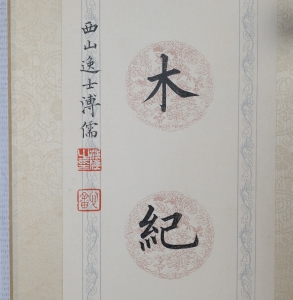 木紀
西山逸士溥儒